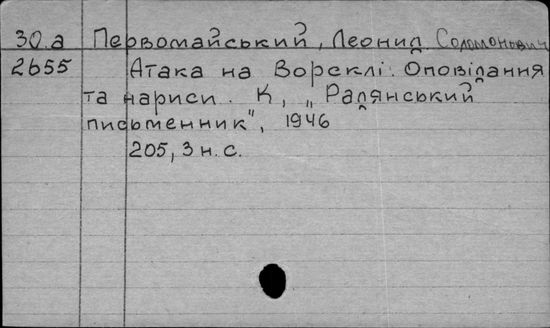 30.а Первомайський, Леонид Соломонович
2655 Атака на Ворсклі. Оповідання
та нариси. К, „Радянський
письменник", 1946
205, 3 н. с.